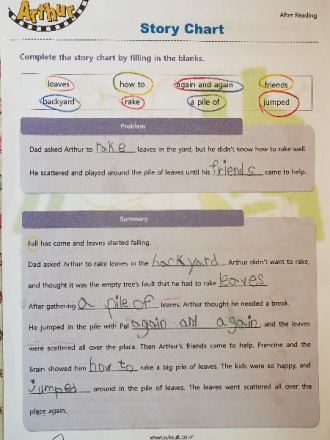 Arthur
After Reading
Story Chart
Complete the story chart by filling in the blanks.
leaves how to again and again friends
backyard rake a pile of jumped
Problem
Dad asked Arthur to rake leaves in the yard, but he didn't know how to rake well.
He scattered and played around the pile of leaves until his friends came to help.
Summary
Fall has come and leaves started falling.
Dad asked Arthur to rake leaves in the backyard. Arthur didn't want to rake,
and thought it was the empty tree's fault that he had to rake leaves
After gathering a pile of leaves, Arthur thought he needed a break.
He jumped in the pile with Pal again and again, and the leaves
were scattered all over the place. Then Arthur's friends came to help. Francine and the
Brain showed him how to rake a big pile of leaves. The kids were so happy, and
jumped around in the pile of leaves. The leaves went scattered all over the
place again.